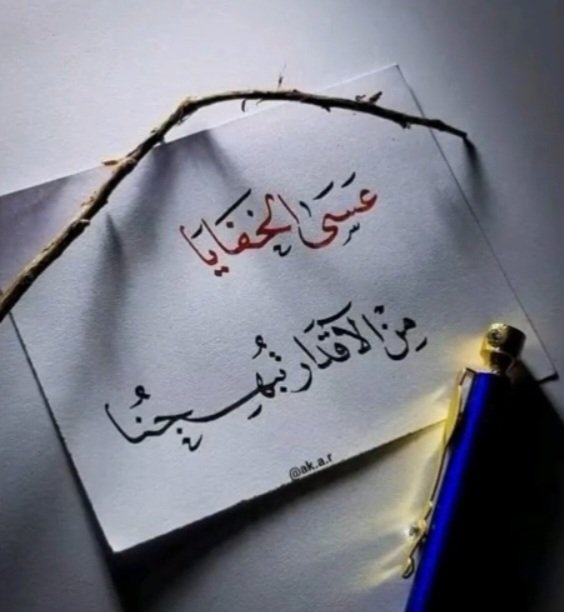 عَسَى الخَفَايَا
مِنْ الأَقْدَار تُبْهِجُنَا
@ak.a.r